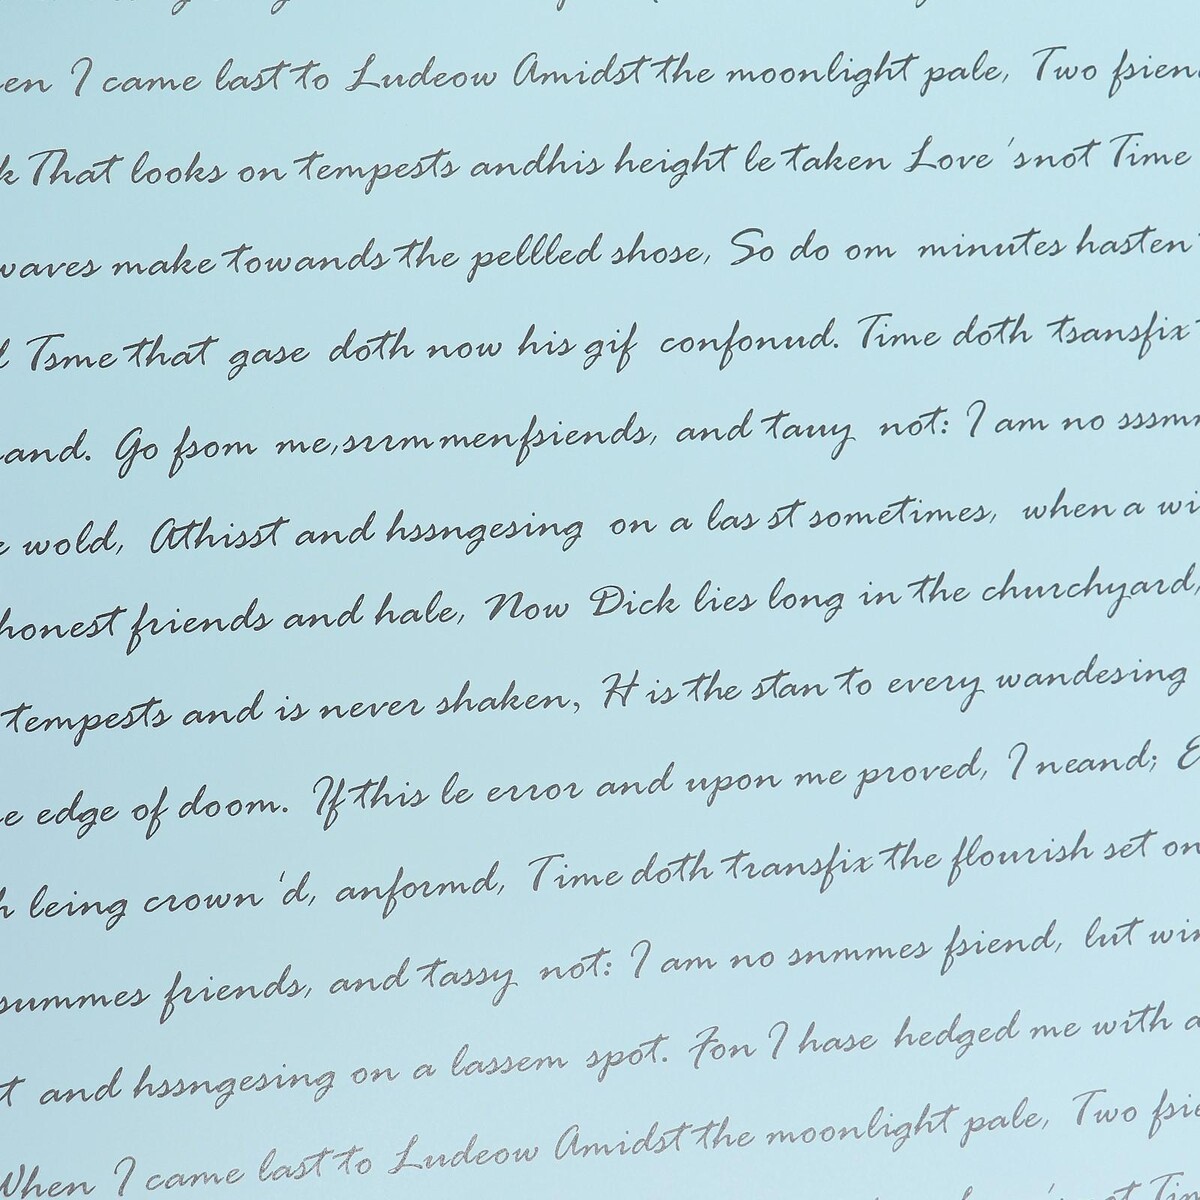 en I came last to Ludeow Amidst the moonlight pale, Two fsien
k That looks on tempests andhis height le taken Love 'snot Time
waves make towands the pellled shose, So do om minutes hasten
l Tsme that gase doth now his gif confonud. Time doth tsansfix
and. Go fsom me,srrmmenfsiends, and tauy not: I am no sssm
e wold, Athisst and hssngesing on a las st sometimes, when a wi
honest friends and hale, Now Dick lies long in the churchyard,
tempests and is never shaken, H is the stan to every wandesing
e edge of doom. If this le error and upon me proved, I neand; E
h leing crown'd, anformd, Time doth transfix the flourish set on
summes friends, and tassy not: I am no snmmes fsiend, lut win
t and hssngesing on a lassem spot. Fon I hase hedged me with a
When I came last to Ludeow Amidst the moonlight pale, Two fsie